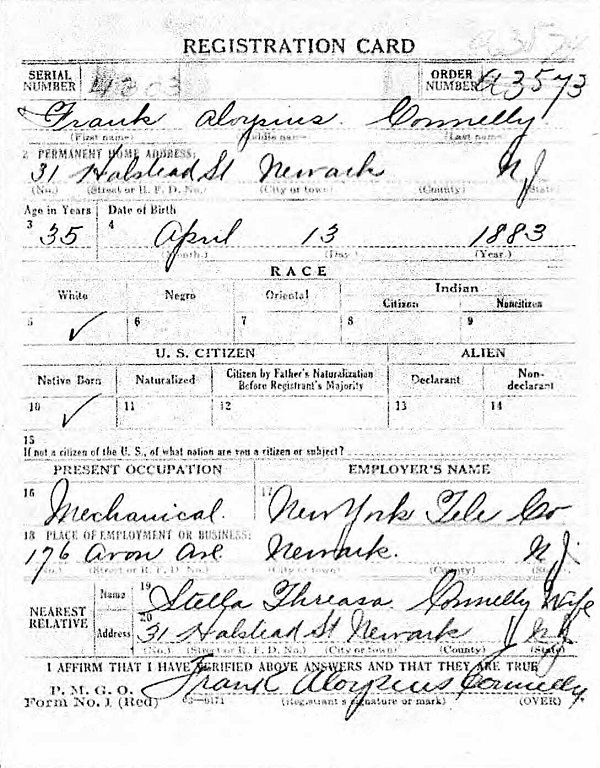 REGISTRATION CARD
SERIAL NUMBER ORDER NUMBER A3573
Frank Aloysius Connelly
(First name) (Middle name) (Last name)
2 PERMANENT HOME ADDRESS:
31 Halstead St Newark N J
(No.) (Street or R. F. D. No.) (City or town) (County) (State)
Age in Years Date of Birth
3 35 4 April 13 1883
(Month.) (Day.) (Year.)
RACE
White Negro Oriental Indian
Citizen Noncitizen
5 ✓ 6 7 8 9
U. S. CITIZEN ALIEN
Native Born Naturalized Citizen by Father's Naturalization Before Registrant's Majority Declarant Non-declarant
10 ✓ 11 12 13 14
15
If not a citizen of the U. S., of what nation are you a citizen or subject?
PRESENT OCCUPATION EMPLOYER'S NAME
16 Mechanical 17 New York Tele Co
18 PLACE OF EMPLOYMENT OR BUSINESS:
176 Avon Ave Newark. N. J.
(No.) (Street or R. F. D. No.) (City or town) (County) (State)
NEAREST RELATIVE
Name 19 Stella Threasa Connelly Wife
Address 20 31 Halstead St Newark N J
(No.) (Street or R. F. D. No.) (City or town) (County) (State)
I AFFIRM THAT I HAVE VERIFIED ABOVE ANSWERS AND THAT THEY ARE TRUE
P. M. G. O.
Form No. 1 (Red) 03—6171 Frank Aloysius Connelly
(Registrant's signature or mark) (OVER)